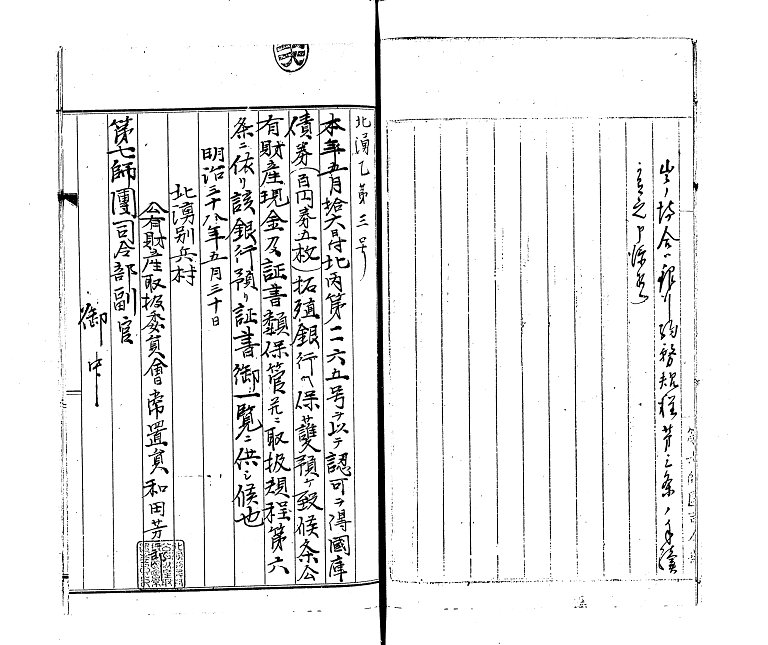 此ノ場合ハ銀行
規程第三条ノ手續
北湧乙第三号
本年五月拾六日付北丙第一二六五号ヲ以テ認可ヲ得國庫
債券(百円券五枚)拓殖銀行ヘ保護預ケ致候条公
有財産現金及証書類保管並ニ取扱規程第六
条ニ依リ該銀行預リ証書御一覧ニ供シ候也
明治三十八年五月三十日
北湧別兵村
公有財産取扱委員會常置員和田芳三郎
第七師團司令部副官
御中